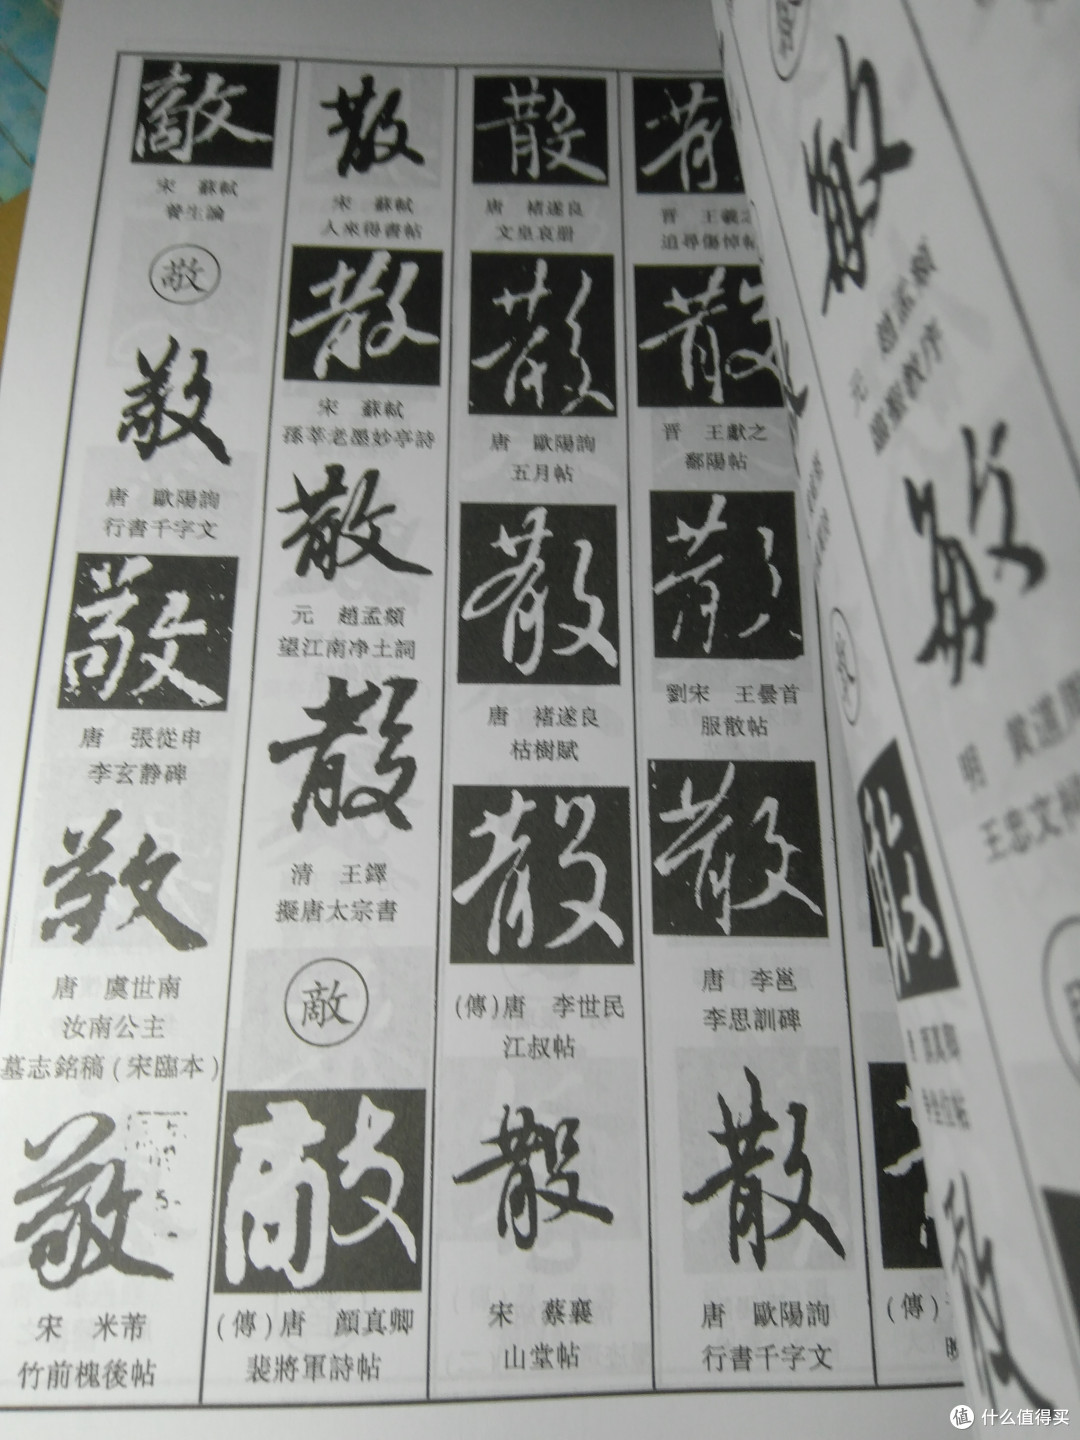 散
晋 王羲之
追尋傷悼帖
散
晋 王獻之
鄱陽帖
散
劉宋 王曇首
服散帖
散
唐 李邕
李思訓碑
散
唐 歐陽詢
行書千字文
散
唐 褚遂良
文皇哀册
散
唐 歐陽詢
五月帖
散
唐 褚遂良
枯樹賦
散
(傳)唐 李世民
江叔帖
散
宋 蔡襄
山堂帖
散
宋 蘇軾
人來得書帖
散
宋 蘇軾
孫莘老墨妙亭詩
散
元 趙孟頫
望江南净土詞
散
清 王鐸
擬唐太宗書
敵
敵
(傳)唐 顔真卿
裴將軍詩帖
敵
宋 蘇軾
養生論
敬
敬
唐 歐陽詢
行書千字文
敬
唐 張從申
李玄静碑
敬
唐 虞世南
汝南公主
墓志銘稿(宋臨本)
敬
宋 米芾
竹前槐後帖
敏
元 趙孟頫
敏
明 黄道周
王忠文
(傳)
值 什么值得买